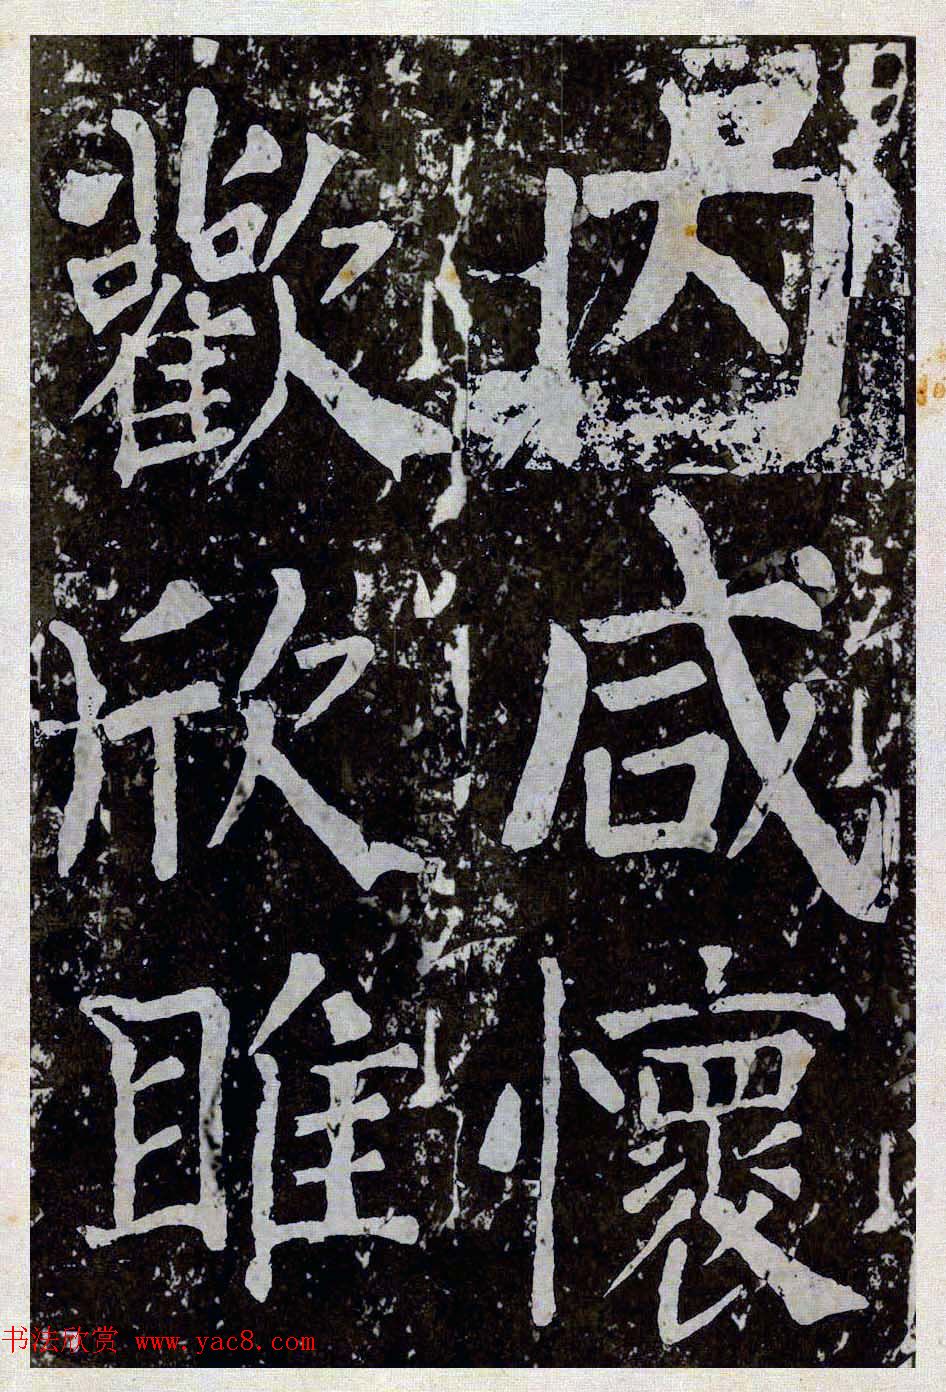 咸懷
歡欣睢
书法欣赏 www.yac8.com